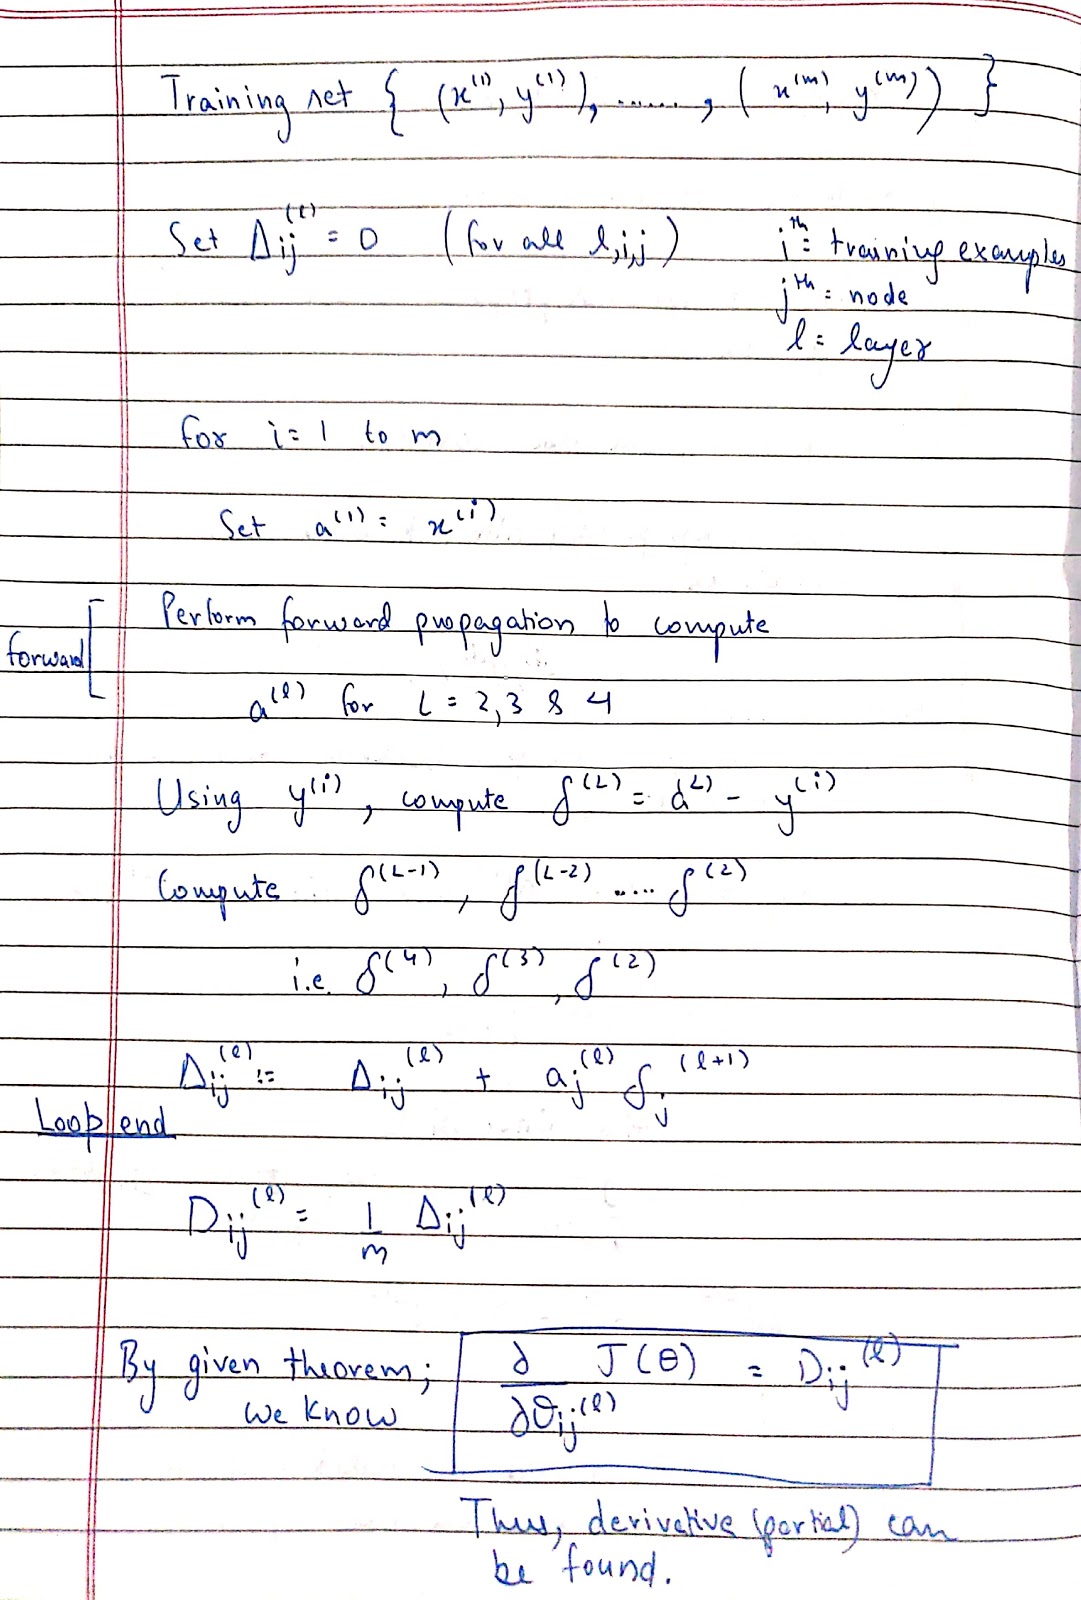 Training set { (x⁽¹⁾, y⁽¹⁾), ......, (x⁽ᵐ⁾, y⁽ᵐ⁾) }
Set Δij⁽ˡ⁾ = 0 (for all l,i,j) iᵗʰ = training examples
jᵗʰ = node
l = layer
for i = 1 to m
Set a⁽¹⁾ = x⁽ⁱ⁾
Perform forward propagation to compute
forward
a⁽ˡ⁾ for L = 2,3 & 4
Using y⁽ⁱ⁾, compute δ⁽ᴸ⁾ = a⁽ᴸ⁾ - y⁽ⁱ⁾
Compute δ⁽ᴸ⁻¹⁾, δ⁽ᴸ⁻²⁾ ..... δ⁽²⁾
i.e. δ⁽⁴⁾, δ⁽³⁾, δ⁽²⁾
Δij⁽ˡ⁾ := Δij⁽ˡ⁾ + aj⁽ˡ⁾ δj⁽ˡ⁺¹⁾
Loop end
Dij⁽ˡ⁾ = 1/m Δij⁽ˡ⁾
By given theorem; ∂/∂θij⁽ˡ⁾ J(θ) = Dij⁽ˡ⁾
we know
Thus, derivative (partial) can
be found.